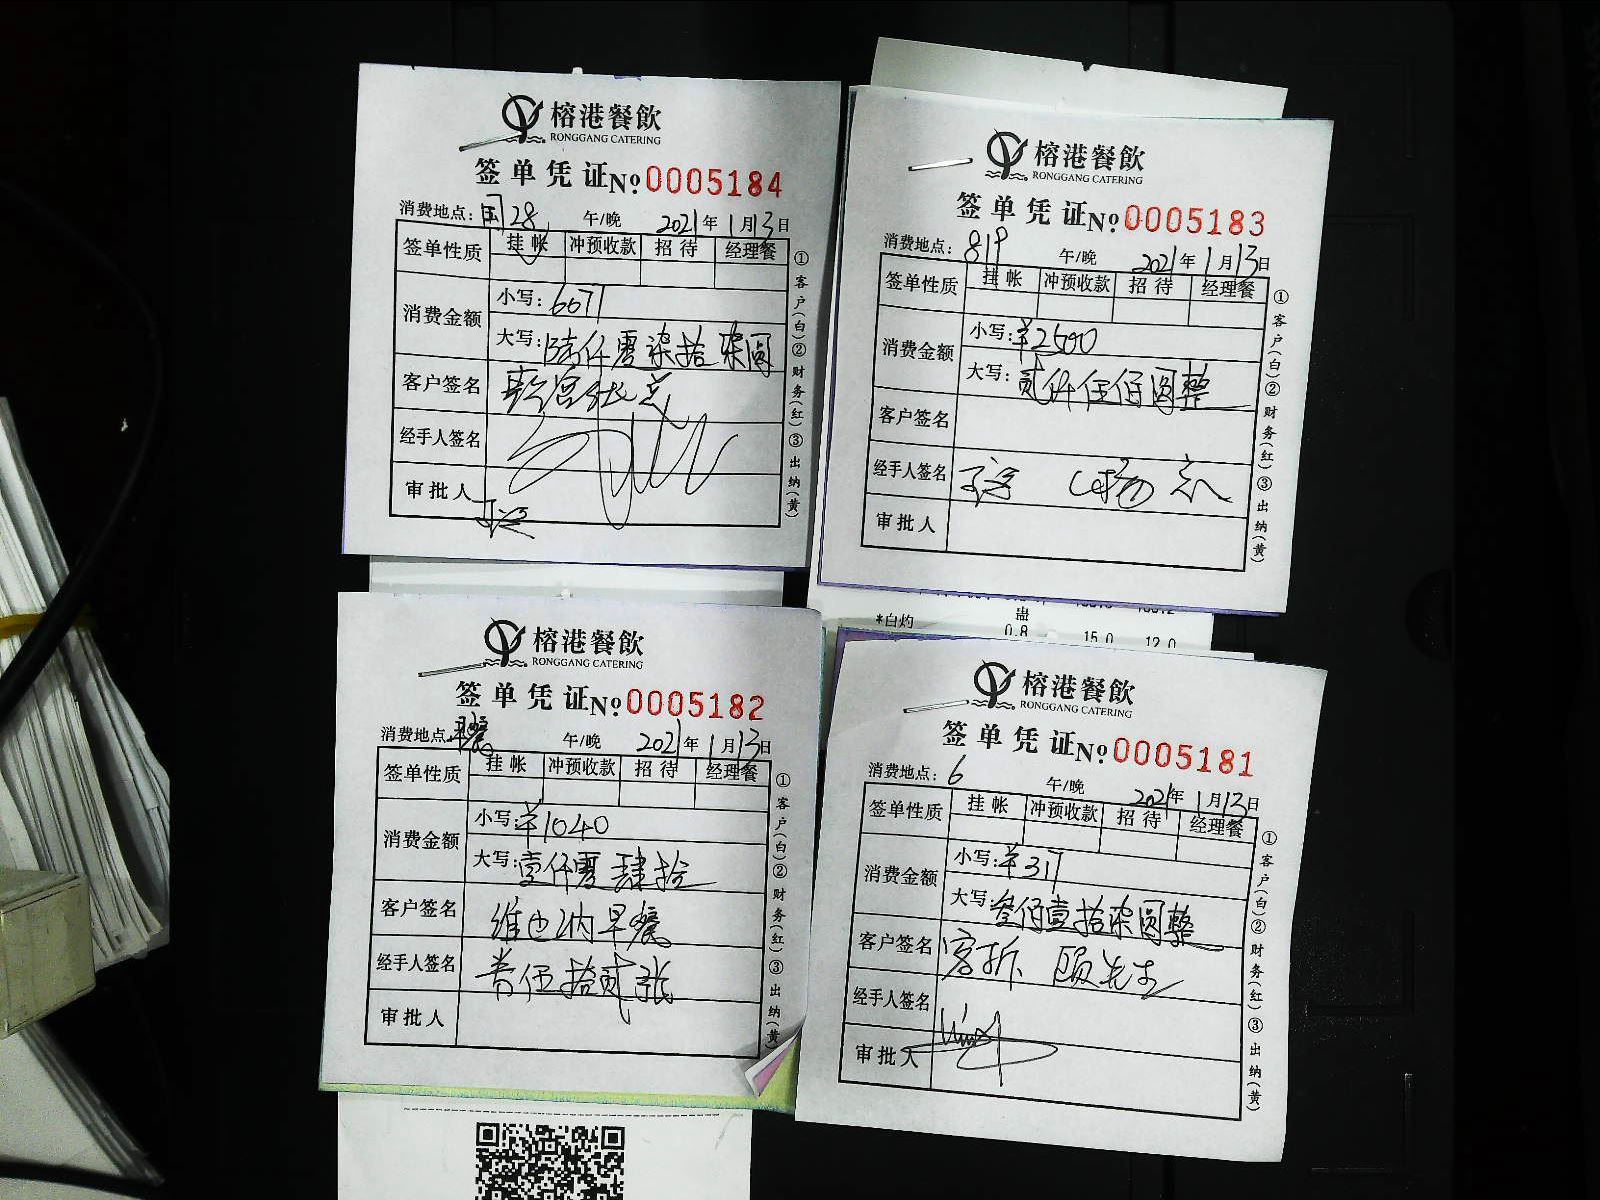 榕港餐飲
RONGGANG CATERING
签单凭证 No 0005184
消费地点: 28 午/晚 2021年1月13日
签单性质 挂帐 冲预收款 招待 经理餐
消费金额 小写: 6077
大写: 陆仟零柒拾柒圆
客户签名
经手人签名
审批人
①客户(白)②财务(红)③出纳(黄)
榕港餐飲
RONGGANG CATERING
签单凭证 No 0005183
消费地点: 819 午/晚 2021年1月13日
签单性质 挂帐 冲预收款 招待 经理餐
消费金额 小写: ¥2500
大写: 贰仟伍佰圆整
客户签名
经手人签名
审批人
①客户(白)②财务(红)③出纳(黄)
*白灼
盅
0.8 15.0 12.0
榕港餐飲
RONGGANG CATERING
签单凭证 No 0005182
消费地点: 早餐 午/晚 2021年1月13日
签单性质 挂帐 冲预收款 招待 经理餐
消费金额 小写: ¥1040
大写: 壹仟零肆拾
客户签名 维也纳早餐
经手人签名 伍拾贰张
审批人
①客户(白)②财务(红)③出纳(黄)
榕港餐飲
RONGGANG CATERING
签单凭证 No 0005181
消费地点: 6 午/晚 2021年1月13日
签单性质 挂帐 冲预收款 招待 经理餐
消费金额 小写: ¥317
大写: 叁佰壹拾柒圆整
客户签名 顾先生
经手人签名
审批人
①客户(白)②财务(红)③出纳(黄)